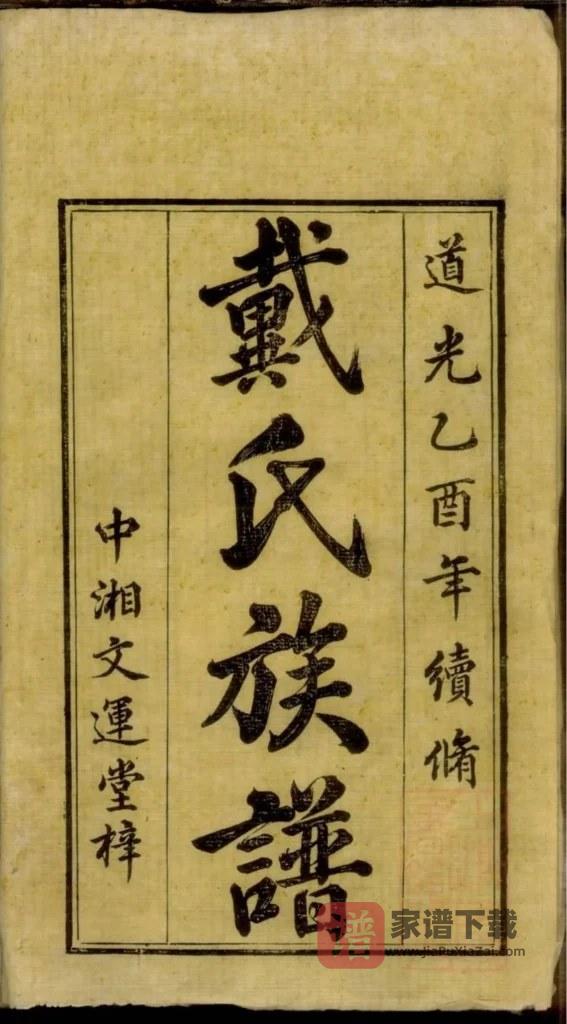 道光乙酉年續脩
戴氏族譜
中湘文運堂梓
谱
家谱下载
www.JiaPuXiaZai.com